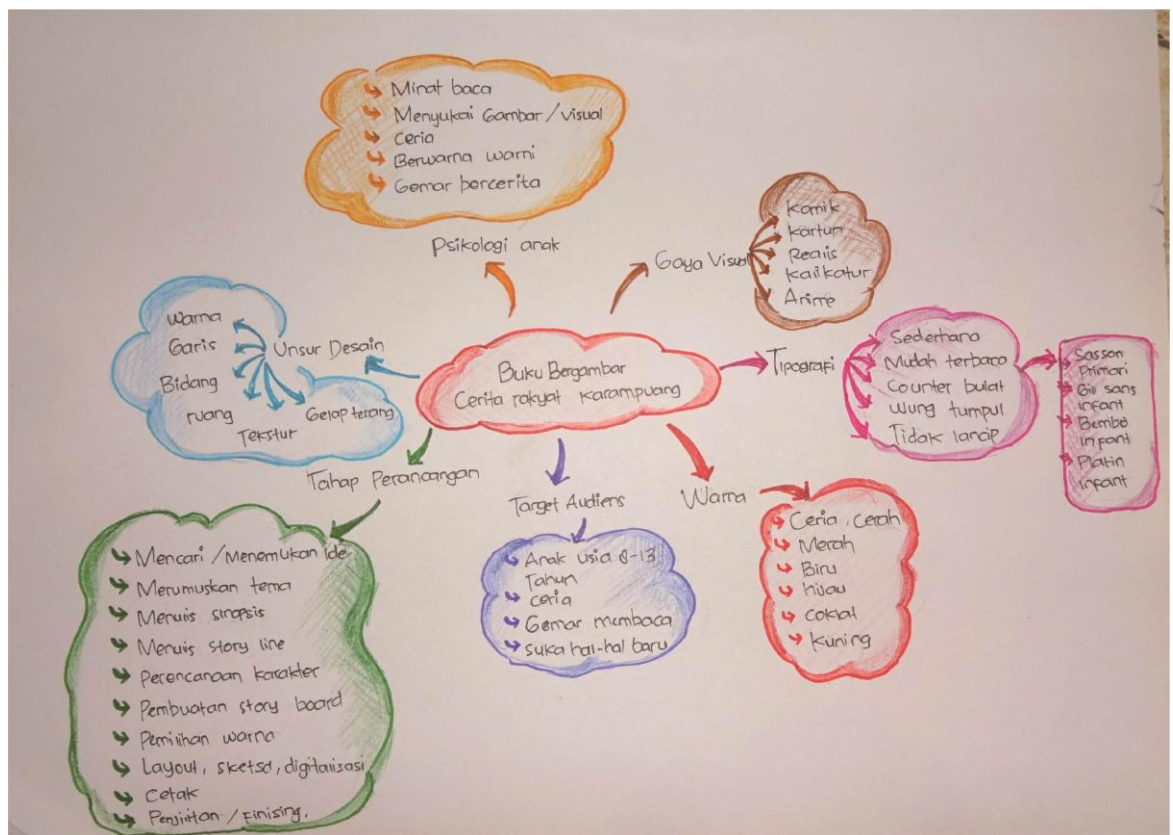 Minat baca
Menyukai Gambar / visual
Ceria
Berwarna warni
Gemar bercerita
Psikologi anak
Gaya Visual
Komik
Kartun
Realis
Karikatur
Anime
Unsur Desain
Warna
Garis
Bidang
ruang
Tekstur
Gelap terang
Buku Bergambar
Cerita rakyat Karampuang
Tipografi
Sederhana
Mudah terbaca
Counter bulat
Tidak lancip
Sasson
Primari
Gill sans
infant
Bembo
infant
Platin
infant
Tahap Perancangan
Mencari / Menemukan ide
Merumuskan tema
Menulis sinopsis
Menulis story line
Perencanaan karakter
Pembuatan story board
Pemilihan warna
Layout, sketsa, digitalisasi
Cetak
Penjilitan / Finising.
Target Audiens
Anak usia 8-13
Tahun
ceria
Gemar membaca
suka hal-hal baru
Warna
Ceria, cerah
Merah
Biru
hijau
coklat
Kuning